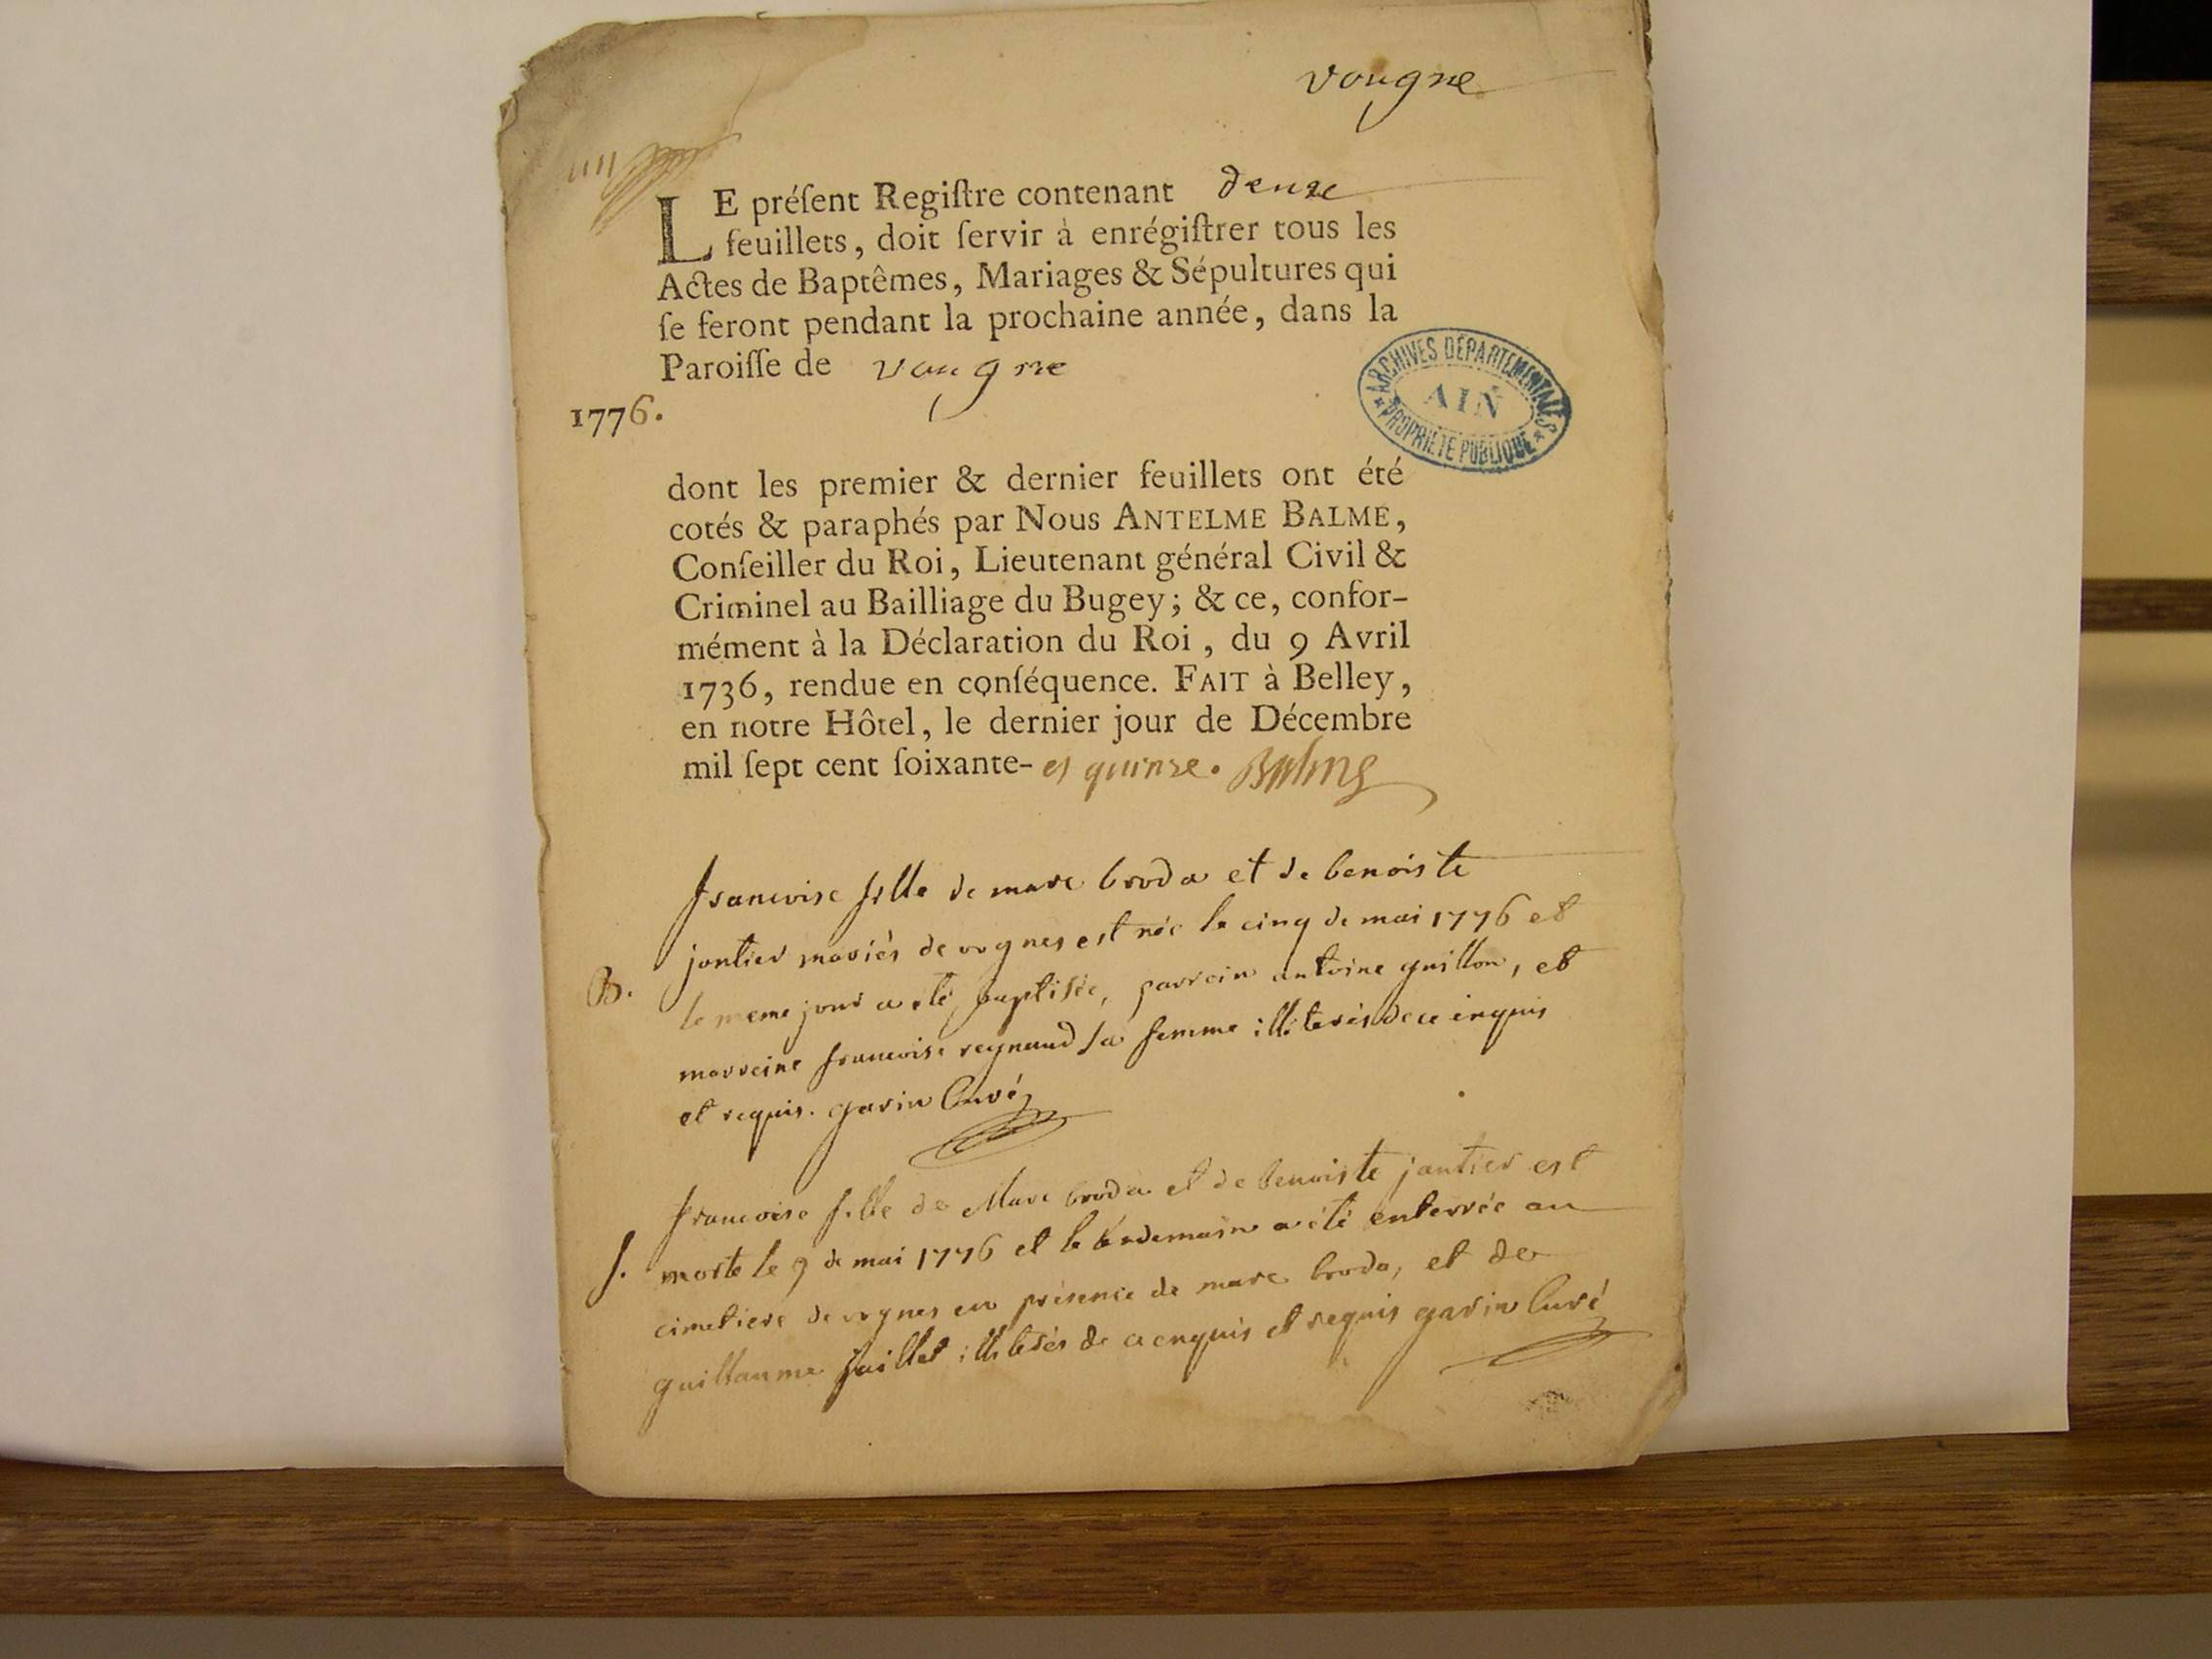 vougne
LE préſent Regiſtre contenant deuze
feuillets, doit ſervir à enrégiſtrer tous les
Actes de Baptêmes, Mariages & Sépultures qui
ſe feront pendant la prochaine année, dans la
Paroiſſe de vougne
ARCHIVES DÉPARTEMENTALES
AIN
PROPRIÉTÉ PUBLIQUE
1776.
dont les premier & dernier feuillets ont été
cotés & paraphés par Nous ANTELME BALME,
Conſeiller du Roi, Lieutenant général Civil &
Criminel au Bailliage du Bugey; & ce, confor-
mément à la Déclaration du Roi, du 9 Avril
1736, rendue en conſéquence. FAIT à Belley,
en notre Hôtel, le dernier jour de Décembre
mil ſept cent ſoixante- et quinze. Balme
francoise fille de marc broda et de benoiste
jontier mariés de vognes est née le cinq de mai 1776 et
B. le meme jour a été baptisée, parrein antoine guillon, et
marreine francoise reynaud sa femme illiterés de ce enquis
et requis. garin Curé
francoise fille de Marc broda et de benoiste jantier est
S. morte le 9 de mai 1776 et le lendemain a été enterrée au
cimetiere de vognes en présence de marc broda, et de
guillaume juillet illiterés de ce enquis et requis garin Curé